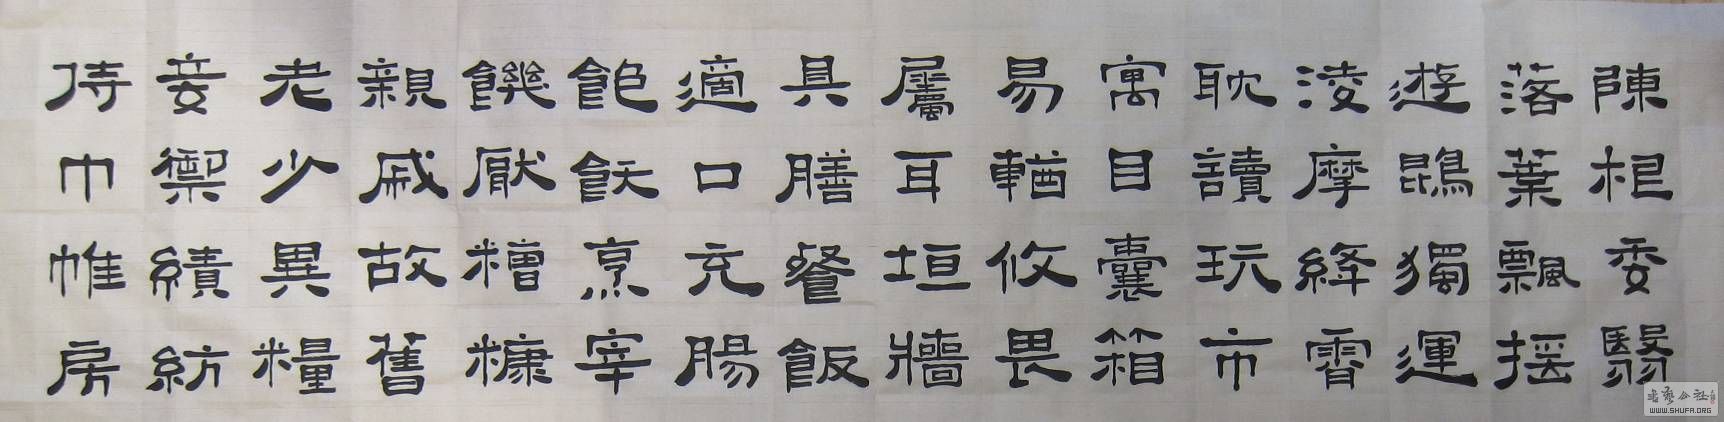 陳根委翳
落葉飄搖
遊鵾獨運
淩摩絳霄
耽讀玩市
寓目囊箱
易輶攸畏
屬耳垣牆
具膳餐飯
適口充腸
飽飫烹宰
饑厭糟糠
親戚故舊
老少異糧
妾禦績紡
侍巾帷房
書藝公社
WWW.SHUFA.ORG